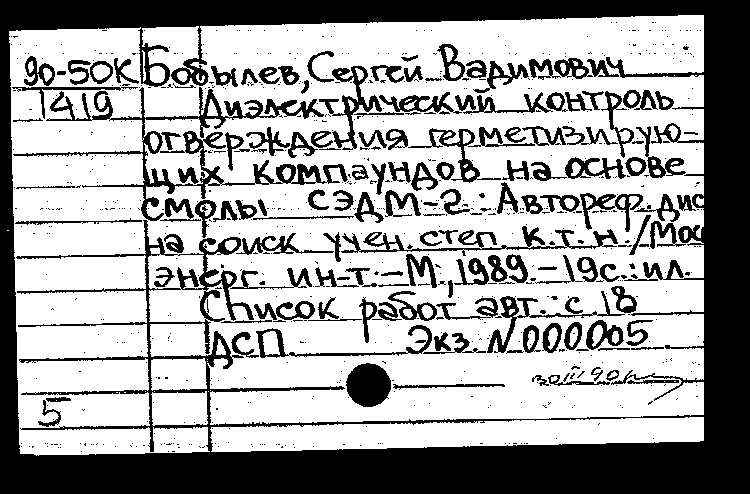 90-50К Бобылев, Сергей Вадимович
1419 Диэлектрический контроль
отверждения герметизирую-
щих компаундов на основе
смолы СЭДМ-2: Автореф. дис
на соиск учен. степ. к.т.н./Мос
энерг. ин-т.-М., 1989.-19с.:ил.
Список работ авт.: с. 18
ДСП. Экз. N000005.
5